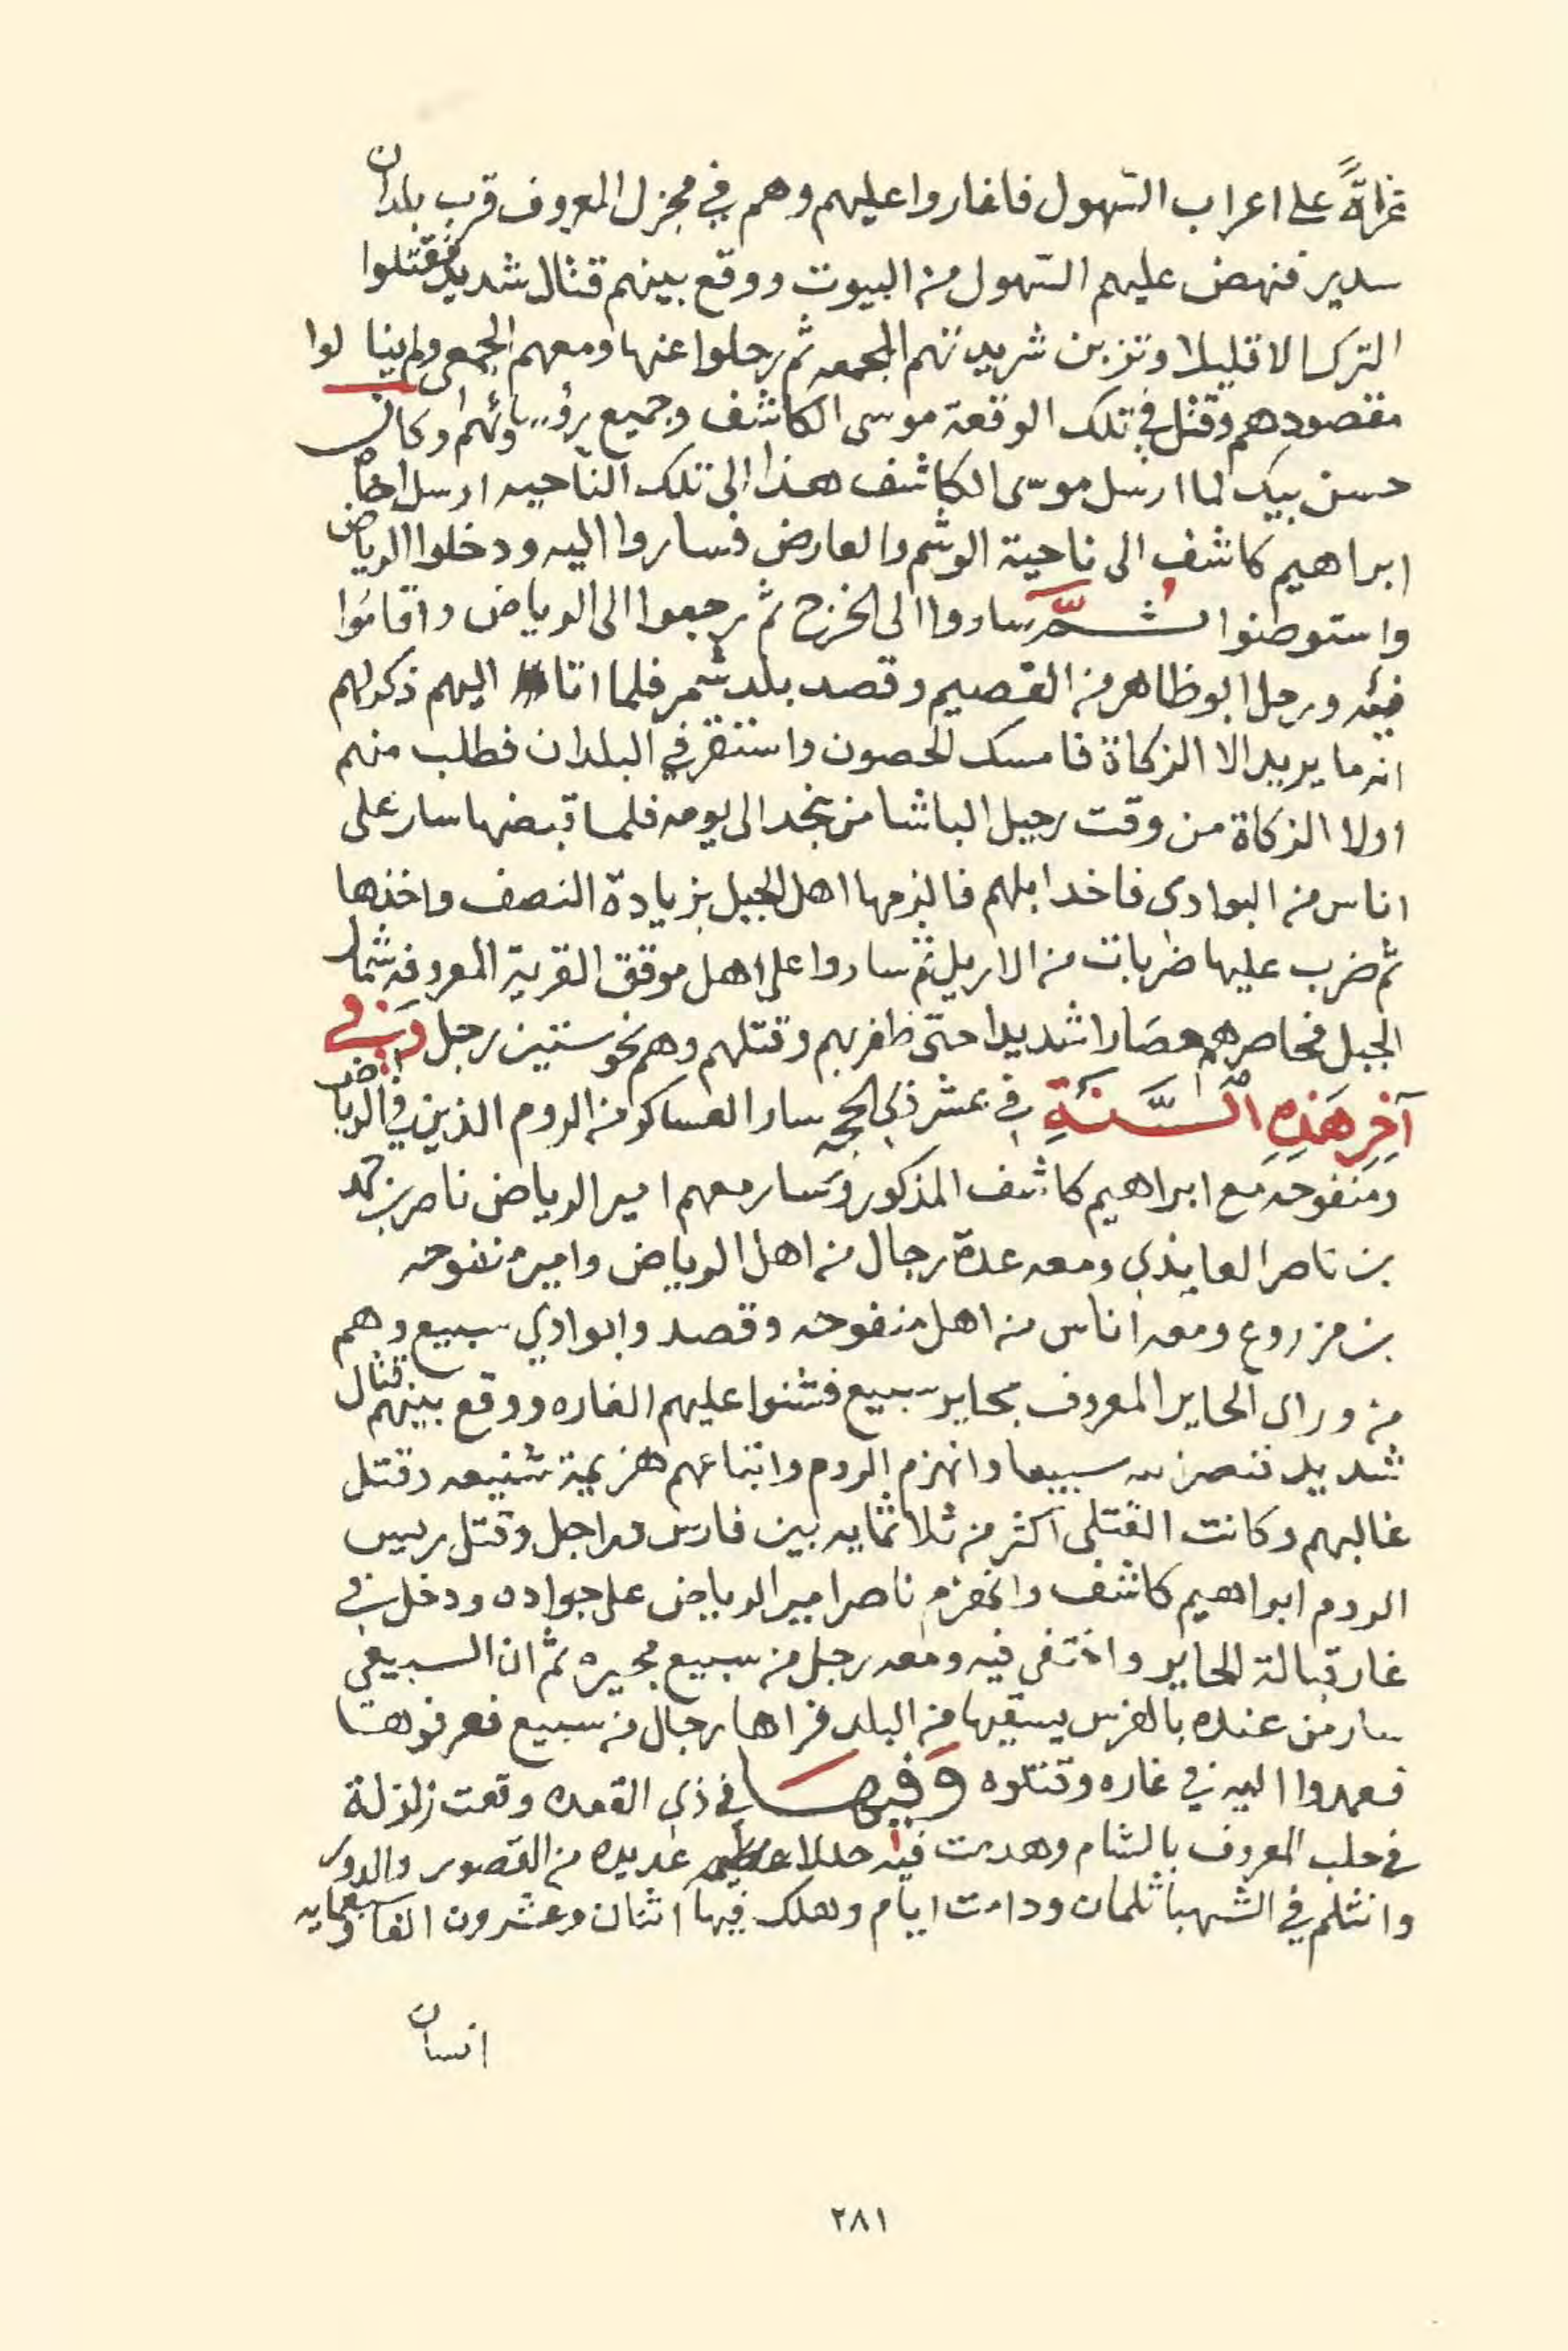 غزاةً على اعراب السّهول فاغاروا عليهم وهم في مجزل المعروف قرب بلدان
سدير فنهض عليهم السّهول من البيوت ووقع بينهم قتال شديد فقتلوا
الترك الا قليلا وتزبن شريدتهم المجمعه ثم رحلوا عنها ومعهم الجمعي ولم ينالوا
مقصودهم وقتل في تلك الوقعة موسى الكاشف وجميع رؤسائهم وكان
حسن بيك لما ارسل موسى الكاشف هذا الى تلك الناحيه ارسل اخاه
ابراهيم كاشف الى ناحية الوشم والعارض فساروا اليه ودخلوا الرياض
واستوطنوا ثُمَّ ساروا الى الخرج ثم رجعوا الى الرياض واقامُوا
فيه ورحل ابوظاهر من القصيم وقصد بلد شمر فلما اتا اليهم ذكر لهم
انه ما يريد الا الزكاة فامسك الحصون واستقر في البلدان فطلب منهم
اولا الزكاة من وقت رحيل الباشا من نجد الى يومه فلما قبضها سار على
اناس من البوادى فاخدا بلهم فالزمها اهل الجبل بزيادة النصف واخذها
ثم ضرب عليها ضربات من الاريل ثم ساروا على اهل موقق القرية المعروفه شمال
الجبل فحاصرهم حصَارا شديدا حتى ظفر بهم وقتلهم وهم نحو ستين رجل وَفي
آخِرِ هَذِهِ السَّنَةِ في عشر ذي الحجه سار العساكر من الروم الذين في الرياض
ومنفوحه مع ابراهيم كاشف المذكور وسَار معهم امير الرياض ناصر بن حمد
بن ناصر العايذي ومعه عدة رجال من اهل الرياض وامير منفوحه
بن مزروع ومعه اناس من اهل منفوحه وقصدوا بوادي سبيع وهم
من وراى الحاير المعروف بحاير سبيع فشنوا عليهم الغاره ووقع بينهم قتال
شديد فنصر الله سبيعا وانهزم الروم واتباعهم هزيمة شنيعه وقتل
غالبهم وكانت القتلى اكثر من ثلاثمايه بين فارس وراجل وقتل رييس
الروم ابراهيم كاشف وانهزم ناصر امير الرياض على جواده ودخل في
غار قبالة الحاير واختفى فيه ومعه رجل من سبيع مجيره ثم ان السبيعي
سار من عنده بالفرس يسقيها من البلد فراها رجال من سبيع فعرفوها
فعمدوا اليه في غاره وقتلوه وَفيهَا في ذي القعده وقعت زلزلة
في حلب المعروف بالشام وهدمت فيه عديده من القصور والدور
وانثلم في الشهبا ثلمان ودامت ايام وهلك فيها اثنان وعشرون الفا وسبعمايه
انسان
٢٨١